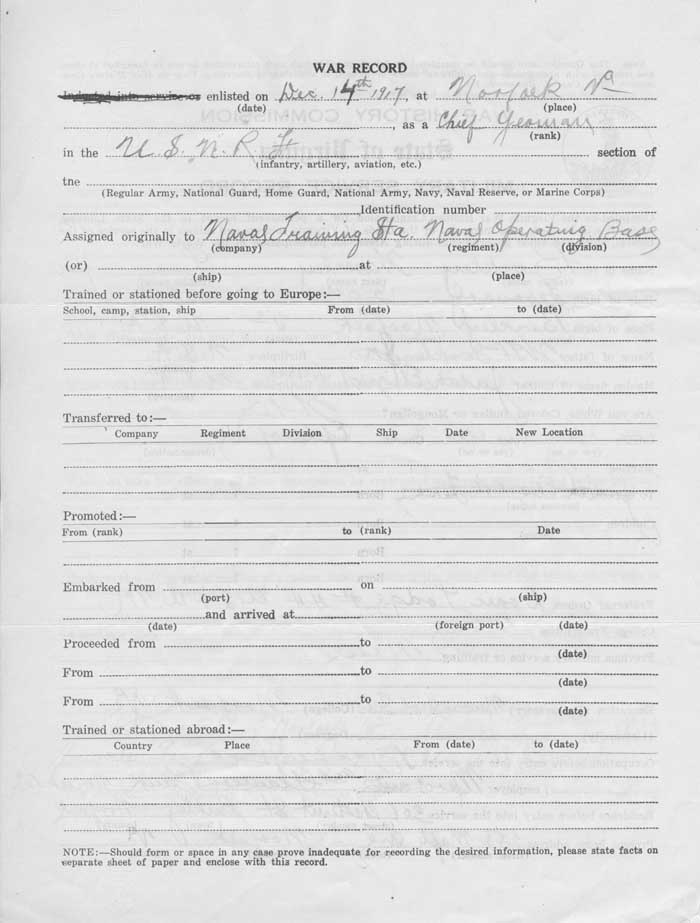 WAR RECORD
Inducted into service or enlisted on Dec. 14th 1917, at Norfolk Va
(date) (place)
, as a Chief Yeoman
(rank)
in the U. S. N. R. F. section of
(infantry, artillery, aviation, etc.)
tne
(Regular Army, National Guard, Home Guard, National Army, Navy, Naval Reserve, or Marine Corps)
Identification number
Assigned originally to Naval Training Sta. Naval Operating Base
(company) (regiment) (division)
(or) at
(ship) (place)
Trained or stationed before going to Europe:—
School, camp, station, ship From (date) to (date)
Transferred to:—
Company Regiment Division Ship Date New Location
Promoted:—
From (rank) to (rank) Date
Embarked from on
(port) (ship)
and arrived at
(date) (foreign port) (date)
Proceeded from to
(date)
From to
(date)
From to
(date)
Trained or stationed abroad:—
Country Place From (date) to (date)
NOTE:—Should form or space in any case prove inadequate for recording the desired information, please state facts on
separate sheet of paper and enclose with this record.